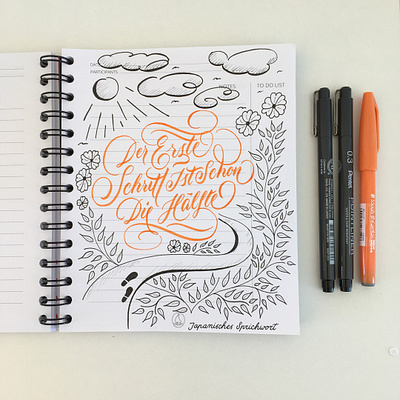 PARTICIPANTS
NOTES
TO DO LIST
Der Erste
Schritt Ist Schon
Die Hälfte
Japanisches Sprichwort
0.3
Pentel